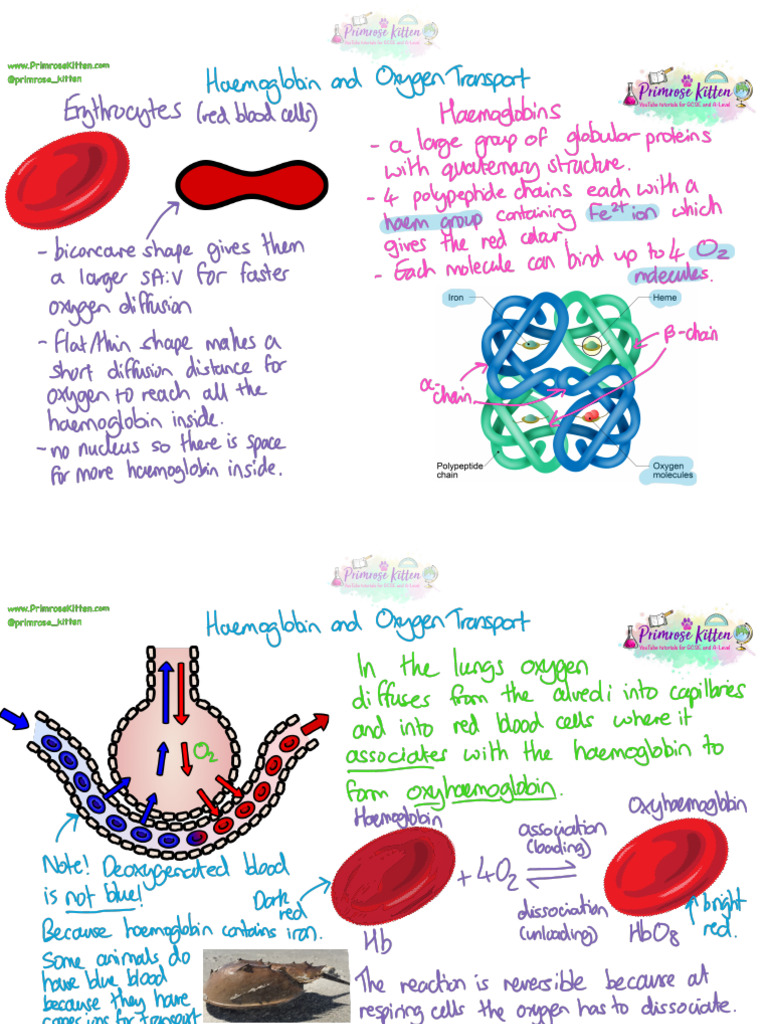 Primrose Kitten
YouTube tutorials for GCSE and A-Level
www.PrimroseKitten.com
@primrose_kitten
Haemoglobin and Oxygen Transport
Primrose Kitten
YouTube tutorials for GCSE and A-Level
Erythrocytes (red blood cells)
- biconcave shape gives them
a larger SA:V for faster
oxygen diffusion
- Flat/thin shape makes a
short diffusion distance for
oxygen to reach all the
haemoglobin inside.
- no nucleus so there is space
for more haemoglobin inside.
Haemoglobins
- a large group of globular proteins
with quaternary structure.
- 4 polypeptide chains each with a
haem group containing Fe²⁺ ion which
gives the red colour.
- Each molecule can bind up to 4 O₂
molecules.
Iron
Heme
β-chain
α-
chain
Polypeptide
chain
Oxygen
molecules
Primrose Kitten
YouTube tutorials for GCSE and A-Level
www.PrimroseKitten.com
@primrose_kitten
Haemoglobin and Oxygen Transport
Primrose Kitten
YouTube tutorials for GCSE and A-Level
O₂
In the lungs oxygen
diffuses from the alveoli into capillaries
and into red blood cells where it
associates with the haemoglobin to
form oxyhaemoglobin.
Note! Deoxygenated blood
is not blue!
Because haemoglobin contains iron.
Some animals do
have blue blood
because they have
copper ions for transport
Haemoglobin
Dark
red
Hb
+ 4O₂
association
(loading)
dissociation
(unloading)
Oxyhaemoglobin
HbO₈
bright
red.
The reaction is reversible because at
respiring cells the oxygen has to dissociate.